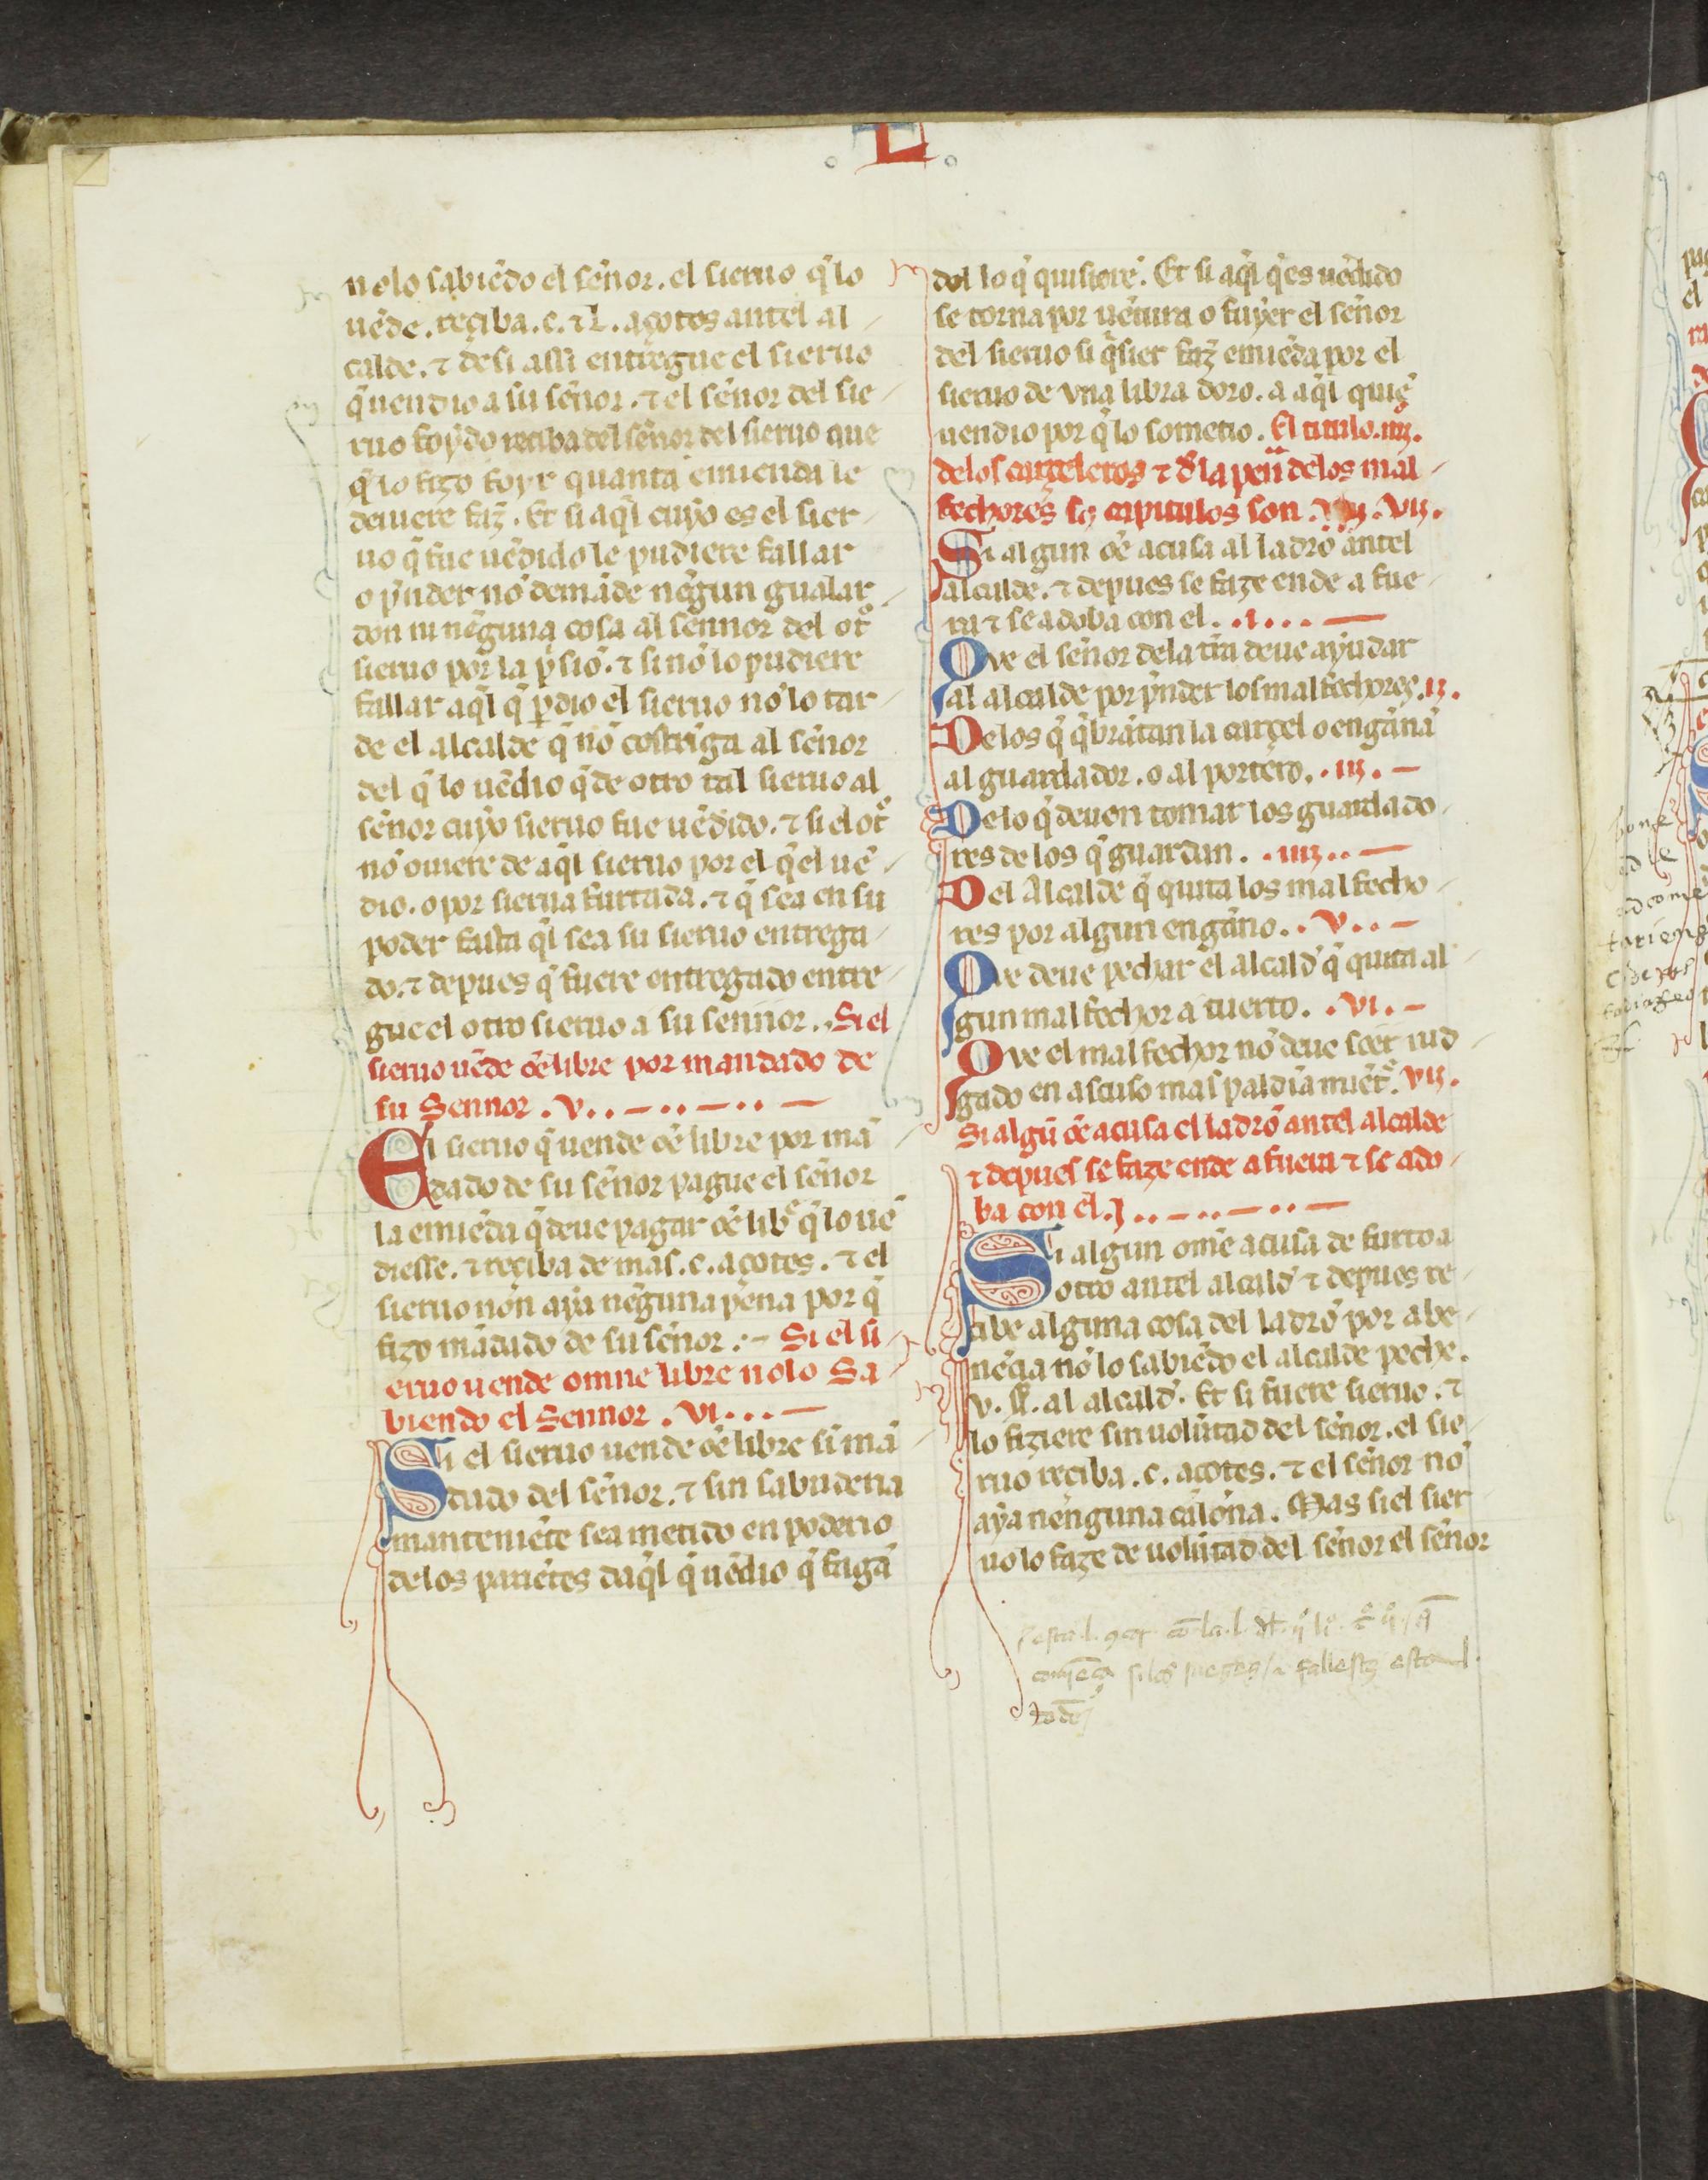 L
nolo sabiẽdo el sẽnor. el sieruo q̃ lo
uẽde. reçiba .c. ⁊ L. açotes antel al
calde. ⁊ desi assi entregue el sieruo
q̃ uendio a su sẽnor. ⁊ el sẽnor del sie
ruo foydo reciba del sẽnor del sieruo que
q̃ lo fizo foyr quanta emienda le
deuiere faz̃. Et si aq̃l cuyo es el sier
uo q̃ fue uẽdido le pudiere fallar
o p̃nder nõ demãde nẽgun gualar
don ni nẽguna cosa al sennor del otro
sieruo por la p̃sion. ⁊ si nõ lo pudiere
fallar aq̃l q̃ p̃dio el sieruo nõ lo tar
de el alcalde q̃ nõ costrĩga al sẽnor
del q̃ lo uẽdio q̃ de otro tal sieruo al
sẽnor cuyo sieruo fue uẽdido. ⁊ si el otro
nõ ouiere de aq̃l sieruo por el q̃ el uẽ
dio. o por sierua furtada. ⁊ q̃ sea en su
poder fasta q̃l sea su sieruo entrega
do. ⁊ depues q̃ fuere entregado entre
gue el otro sieruo a su sennor. Si el
sieruo uẽde oẽ libre por mandado de
su Sennor .V.
El sieruo q̃ uende oẽ libre por mã
dado de su sẽnor pague el sẽnor
la emiẽda q̃ deue pagar oẽ lib̃ q̃ lo uẽ
diesse. ⁊ reçiba de mas .c. açotes. ⁊ el
sieruo non aya nẽguna pẽna por q̃
fizo mãdado de su sẽnor. Si el si
eruo uende omne libre nolo Sa
biendo el Sennor .VI.
Si el sieruo uende oẽ libre sĩ mã
dado del sẽnor. ⁊ sin sabuderia
manteniẽte sea metido en poderio
delos pariẽtes daq̃l q̃ uẽdio q̃ fagã
del lo q̃ quisierẽ. Et si aq̃l q̃ es uẽdido
se torna por uẽtura o fuyer el sẽnor
del sieruo si q̃sier faz̃ emiẽda por el
sieruo de vna libra doro. a aq̃l quiẽ
uendio por q̃ lo sometio. El titulo .iiij.
delos carçeleros ⁊ d̃ la pena delos mal
fechores so capitulos son .VII.
Si algun oẽ acusa al ladrõ antel
alcalde. ⁊ depues se faze ende a fue
ra ⁊ se adoba con el. .i.
Que el sẽnor dela tr̃a deue ayudar
al alcalde por p̃nder los malfechores .ii.
Delos q̃ q̃brãtan la carçel o engãnã
al guardador. o al portero. .iii.
Delo q̃ deuen tomar los guardado
res delos q̃ guardan. .iiij.
Del Alcalde q̃ quita los malfecho
res por algun engãno. .V.
Que deue pechar el alcald̃ q̃ quita al
gun malfechor a tuerto. .VI.
Que el malfechor nõ deue seer iud
gado en ascuso mas paladĩa mientre. VII.
Si algũ oẽ acusa el ladrõ antel alcalde
⁊ depues se faze ende a fuera ⁊ se ado
ba con el. j
Si algun omẽ acusa de furto a
otro antel alcald̃ ⁊ depues re
cibe alguna cosa del ladrõ por abe
nẽcia nõ lo sabiẽdo el alcalde peche.
v. ss̃. al alcald̃. Et si fuere sieruo. ⁊
lo fiziere sin uolũtad del sẽnor. el sie
ruo reçiba .c. açotes. ⁊ el sẽnor nõ
aya nẽnguna calõna. Mas si el sier
uo lo faze de uolũtad del sẽnor el sẽnor